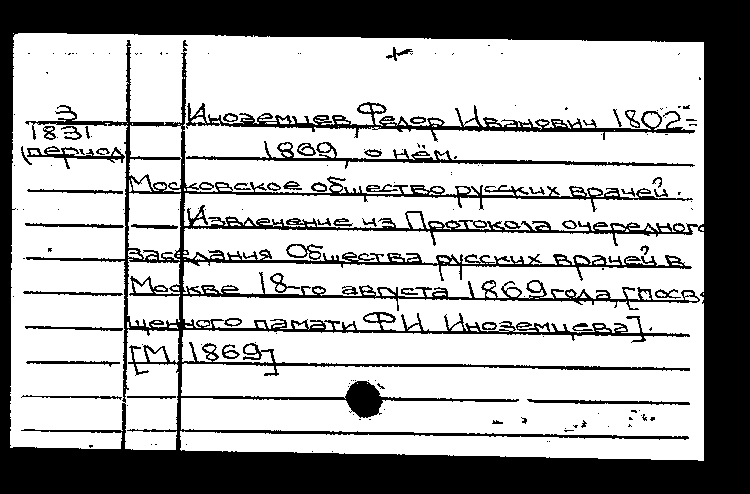 +
3 Иноземцев, Федор Иванович, 1802-
1831
(период 1869, о нём.
Московское общество русских врачей.
Извлечение из Протокола очередного
заседания Общества русских врачей в
Москве 18-го августа 1869 года, [посвя
щенного памяти Ф.И. Иноземцева].
[М, 1869]